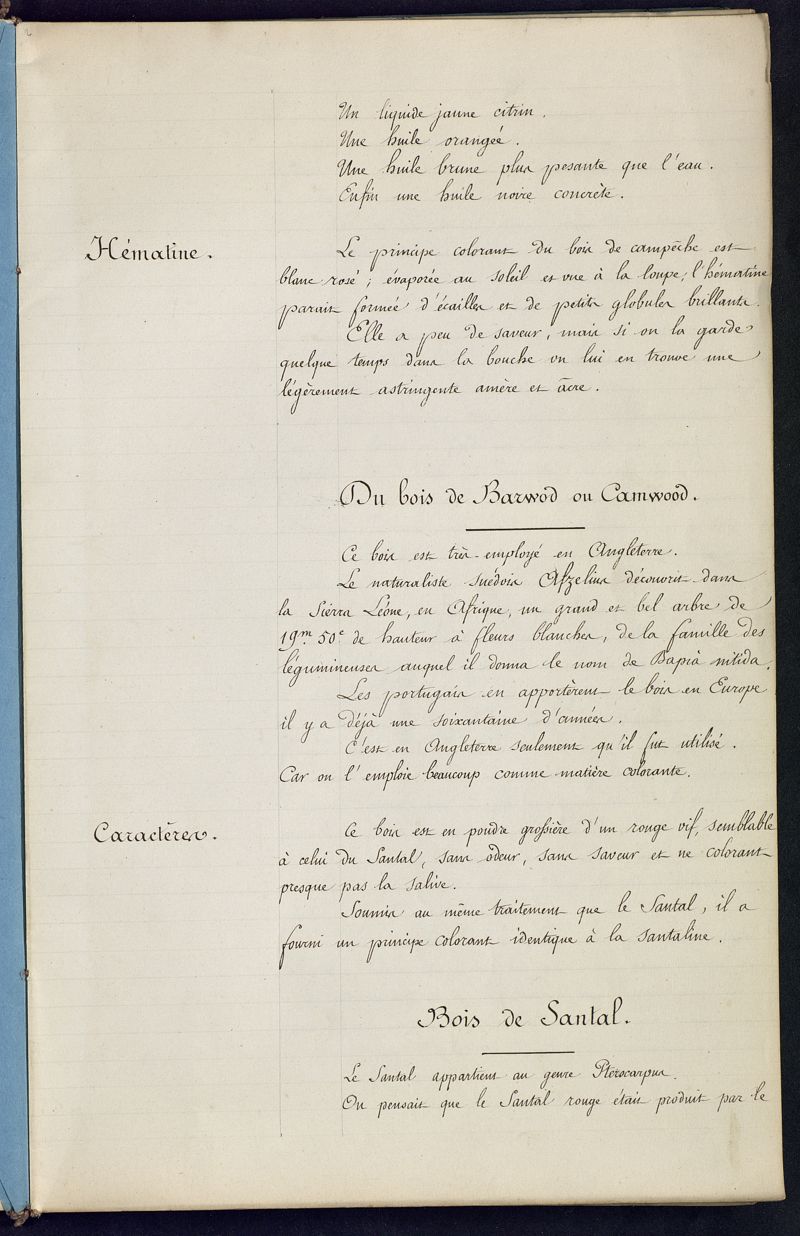 Un liquide jaune citrin.
Une huile orangée.
Une huile brune plus pesante que l'eau.
Enfin une huile noire concrète.
Hématine.
Le principe colorant du bois de campêche est
blanc rosé ; évaporée au soleil et vue à la loupe, l'hématine
parait formée d'écailles et de petits globules brillants.
Elle a peu de saveur, mais si on la garde
quelque temps dans la bouche on lui en trouve une
légèrement astringente amère et âcre.
Du bois de Barwod ou Camwood.
Ce bois est très-employé en Angleterre.
Le naturaliste suédois Afzelius découvrit dans
la Sierra Léone, en Afrique, un grand et bel arbre de
19m. 50c de hauteur à fleurs blanches, de la famille des
légumineuses auquel il donna le nom de Bapia nitida.
Les portugais en apportèrent le bois en Europe
il y a déjà une soixantaine d'années.
C'est en Angleterre seulement qu'il fut utilisé.
Car on l'emploie beaucoup comme matière colorante.
Caractères.
Ce bois est en poudre grossière d'un rouge vif, semblable
à celui du Santal, sans odeur, sans saveur et ne colorant
presque pas la salive.
Soumis au même traitement que le Santal, il a
fourni un principe colorant identique à la santaline.
Bois de Santal.
Le Santal appartient au genre Pterocarpus.
On pensait que le Santal rouge était produit par le